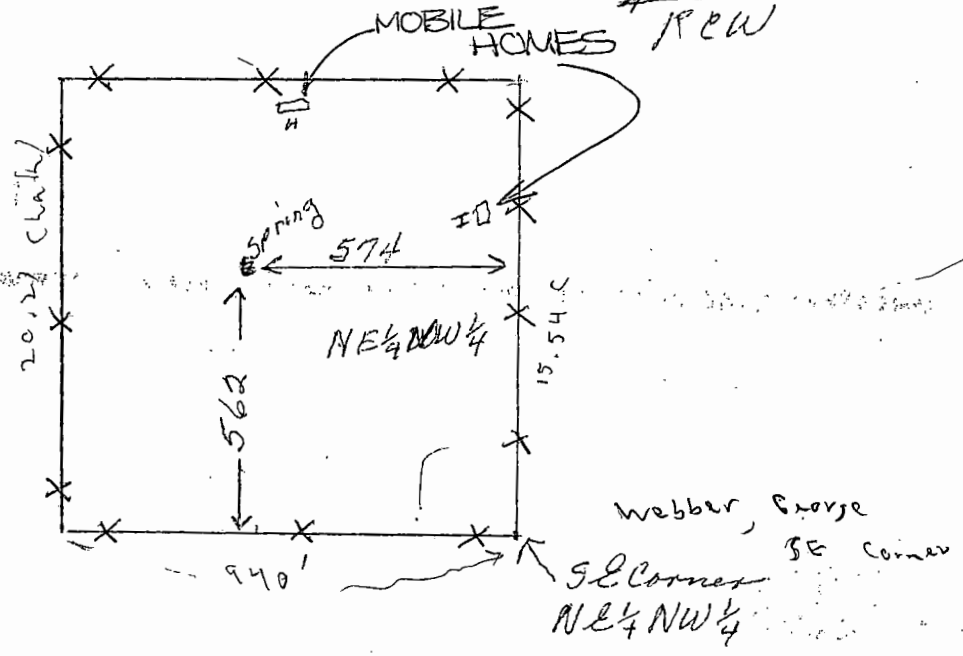 MOBILE
HOMES
H
H
Spring
574
562
NE¼NW¼
15.54 C
940'
Webber, George
SE Corner
SE Corner
NE¼ NW¼